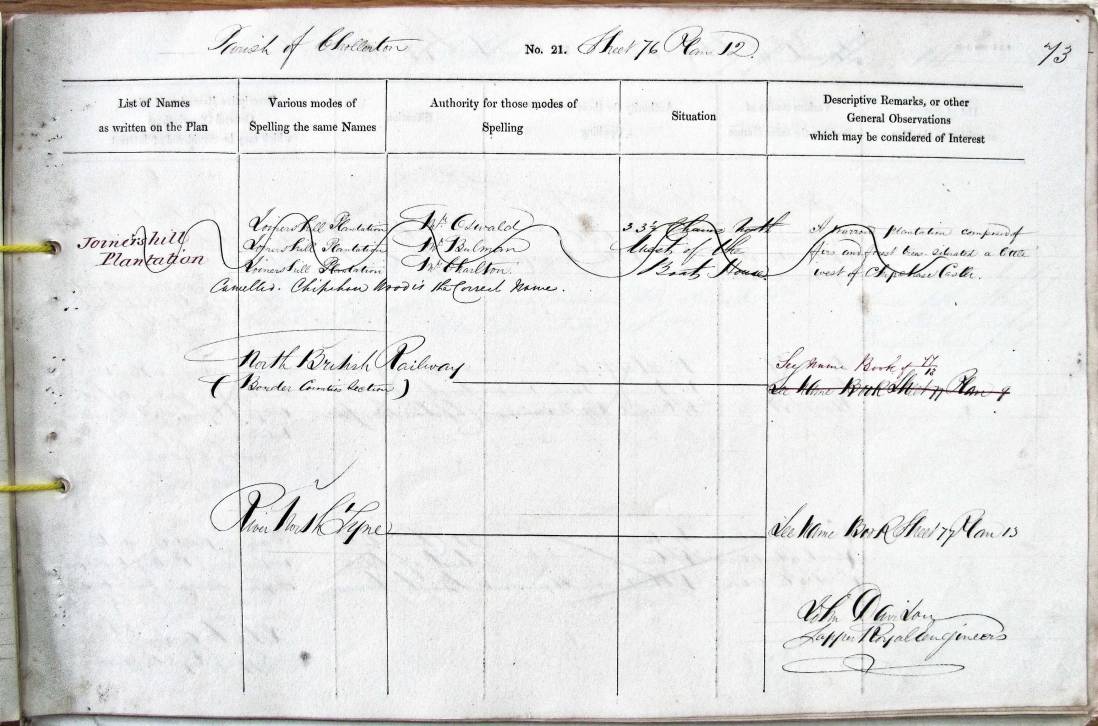 Parish of Chollerton No. 21. Sheet 76 Plan 12. 73
List of Names
as written on the Plan
Various modes of
Spelling the same Names
Authority for those modes of
Spelling
Situation
Descriptive Remarks, or other
General Observations
which may be considered of Interest
Joinershill
Plantation
Joinershill Plantation
Joinershill Plantation
Joinershill Plantation
Mr. Oswald
Mr. Bulman
Mr. Charlton
33½ Chains North
West of the
Boat House
A narrow Plantation composed of
firs and forest trees. situated a little
west of Chipchase Castle.
Cancelled. Chipchase Wood is the Correct Name.
North British Railway
(Border Counties Section)
See Name Book of 77/13
See Name Book Sheet 77 Plan 9
River North Tyne
See Name Book Sheet 77 Plan 13
John Davidson
Sapper Royal Engineers